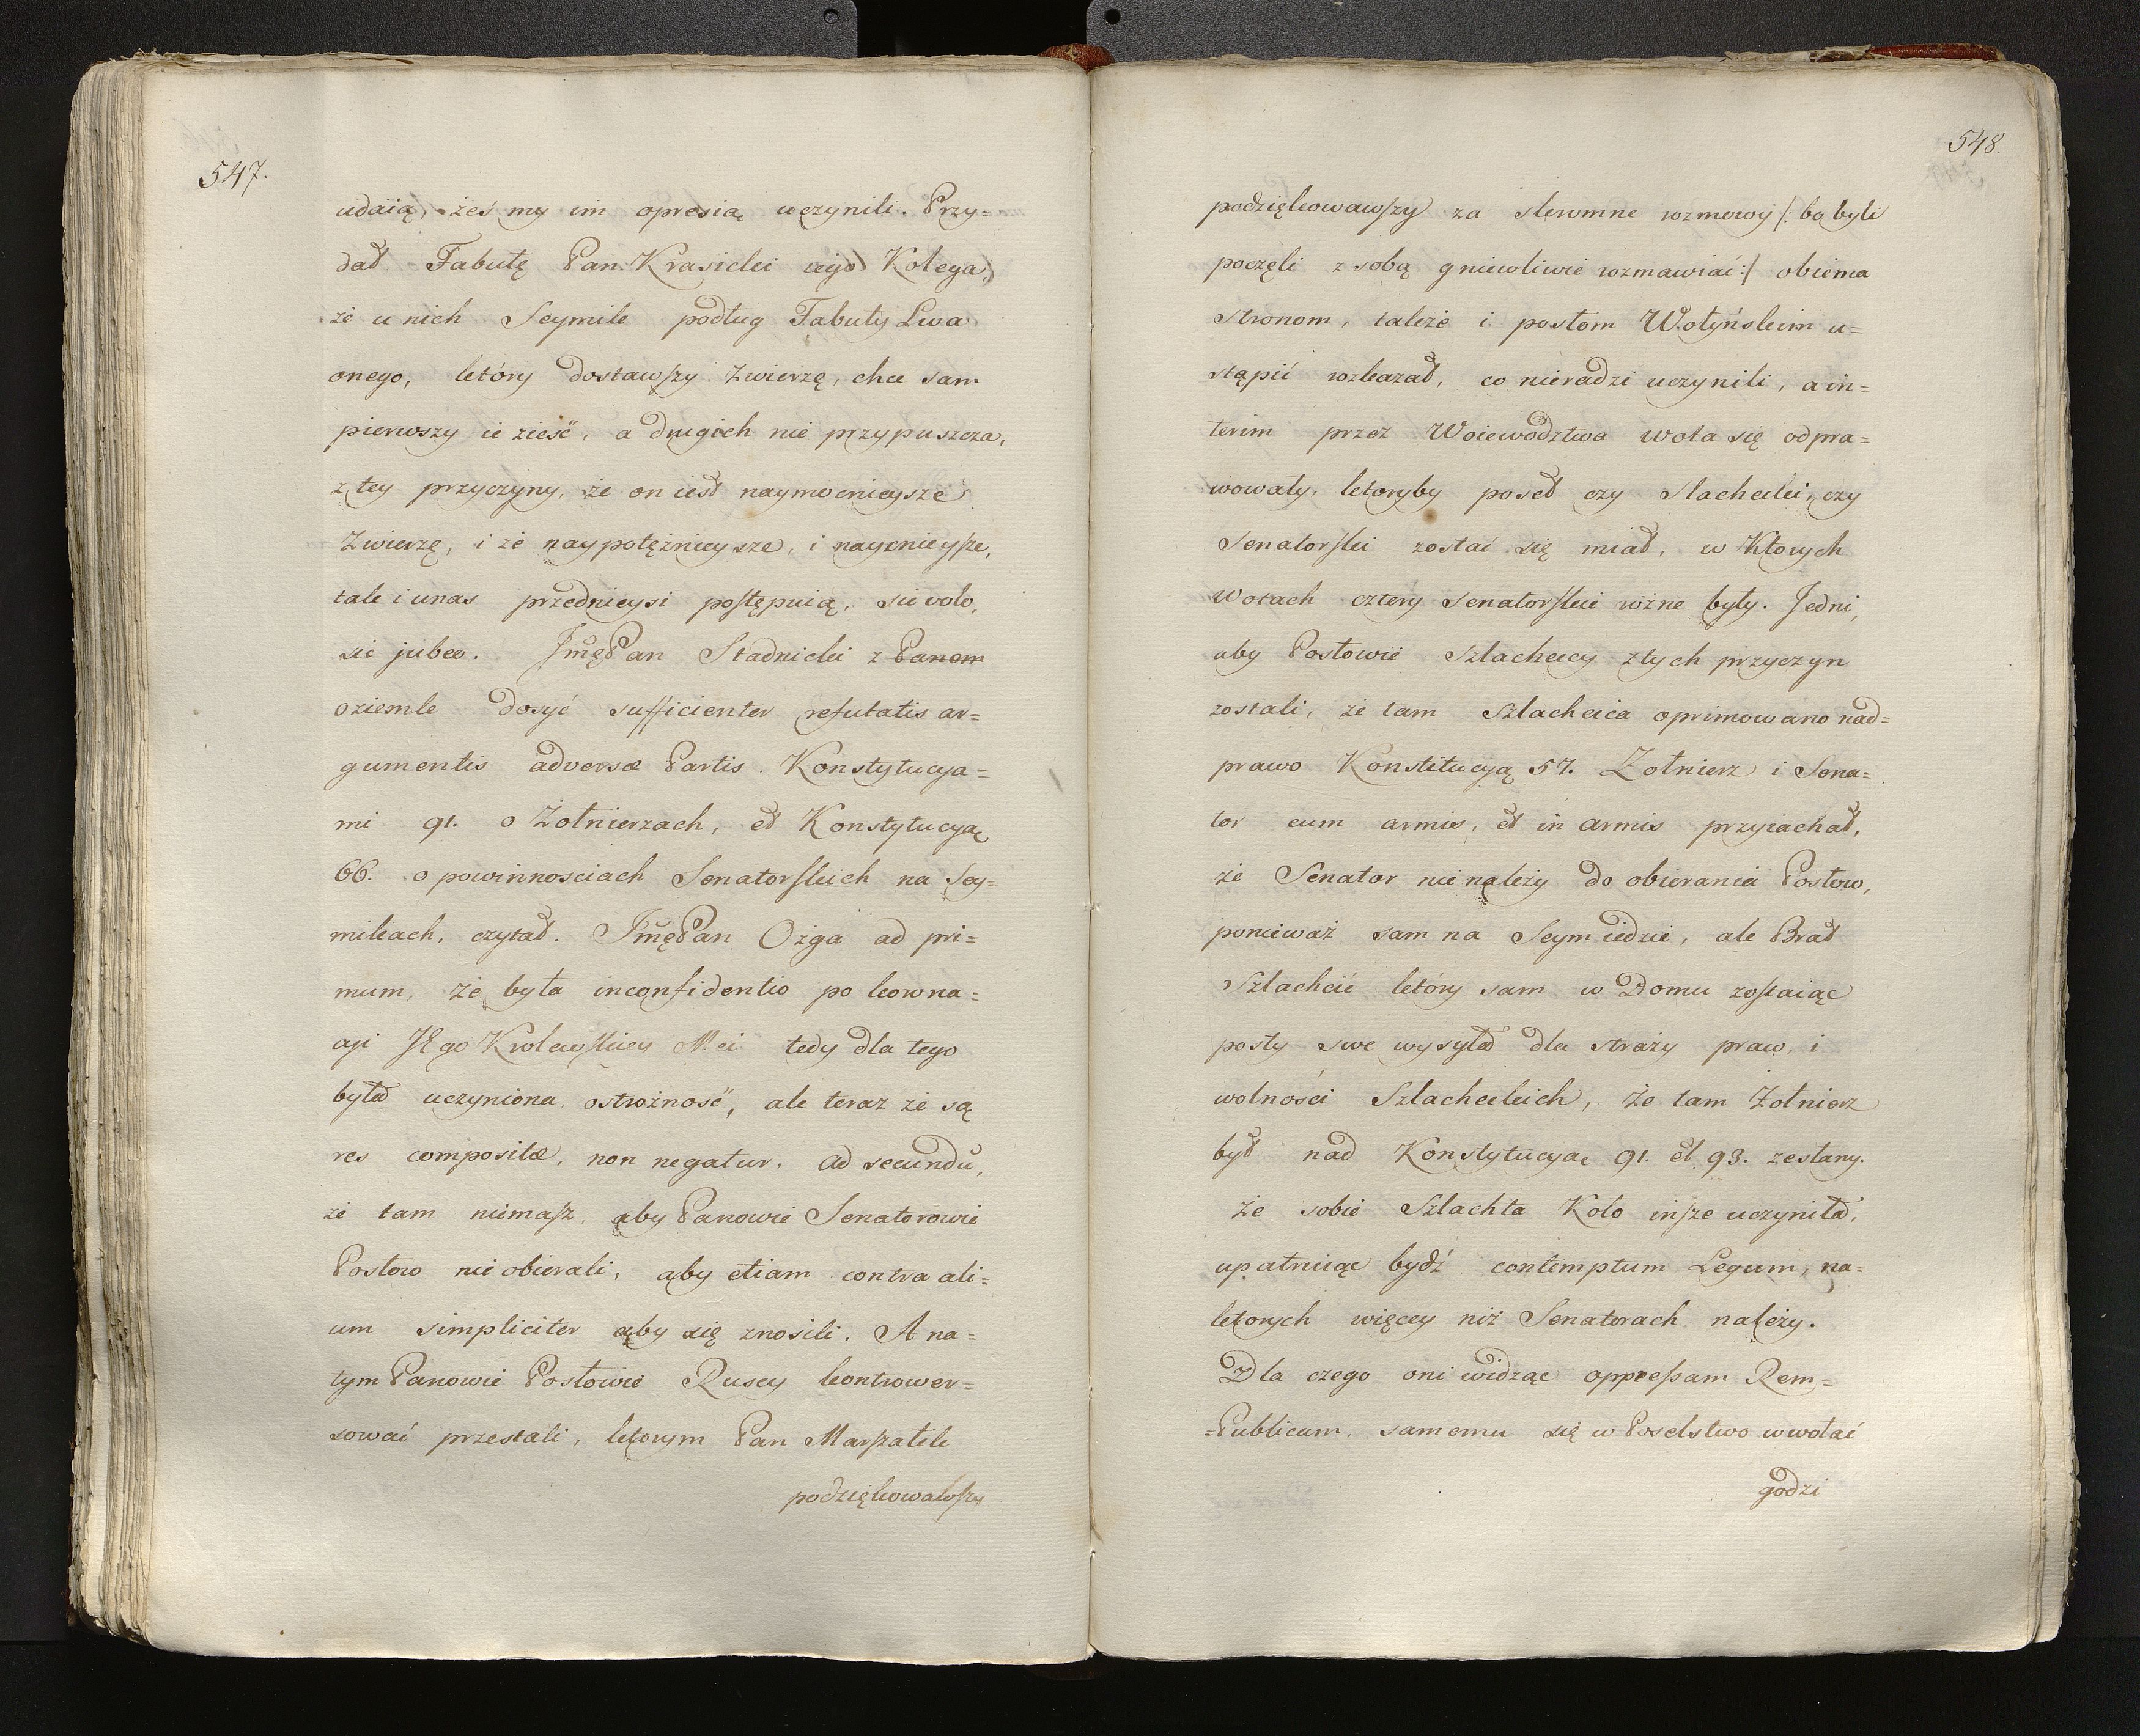 547.
udaią, żeś my im opresią uczynili. Przy=
dał Fabułę Pan Krasicki iego Kolega,
że u nich Seymik podług Fabuły Lwa
onego, który dostawszy Zwierzę, chce sam
pierwszy ie zieść, a drugich nie przypuszcza,
z tey przyczyny, że on iest naymocnieysze
Zwierzę, i że naypotężnieysze, i naycnieysze,
tak i u nas przednieysi postępuią, sic volo,
sic jubeo. Jmę Pan Stadnicki z Panem
oziemle dosyć sufficienter refutatis ar=
gumentis adversæ Partis. Konstytucya=
mi 91. o Żołnierzach, et Konstytucyą
66. o powinnosciach Senatorskich na Sey=
mikach, czytał. Jmę Pan Ożga ad pri=
mum, że była inconfidentio po korona=
cyi JEgo Krolewskiey Mci tedy dla tego
była uczyniona ostrożność, ale teraz że są
res compositæ, non negatur. Ad secundū,
że tam niemasz, aby Panowie Senatorowie
Posłow nie obierali, aby etiam contra ali=
um simpliciter aby się znosili. A na=
tym Panowie Posłowie Ruscy kontrower=
sować przestali, ktorym Pan Marszałek
podziękowawszy
548.
podziękowawszy za skromne rozmowy /: bo byli
poczęli z sobą gniewliwie rozmawiać :/ obiema
stronom, także i posłom Wołyńskim u=
stąpić rozkazał, co nieradzi uczynili, a in=
terim przez Woiewodztwa wota się odpra=
wowały, ktoryby poseł czy Slachecki, czy
Senatorski zostać się miał, w Ktorych
Wotach cztery Senatorskie rożne były. Jedni,
aby Posłowie Szlacheccy z tych przyczyn
zostali, że tam Szlachcica oprimowano nad=
prawo Konstitucyą 57. Zołnierz i Sena=
tor cum armis, et in armis przyiachał,
że Senator nie należy do obierania Posłow,
ponieważ sam na Seym iedzie, ale Brat
Szlachcić który sam w Domu zostaiąc
posły swe wysyła dla straży praw, i
wolności Szlacheckich, Że tam Żołnierz
był nad Konstytucyą 91. et 93. zesłany.
Że sobie Szlachta Koło insze uczyniła,
upatruiąc bydź contemptum Legum, na=
ktorych więcey niż Senatorach należy.
Dla czego oni widząc oppressam Rem=
=Publicam, samemu się w Poselstwo wwołać
godzi